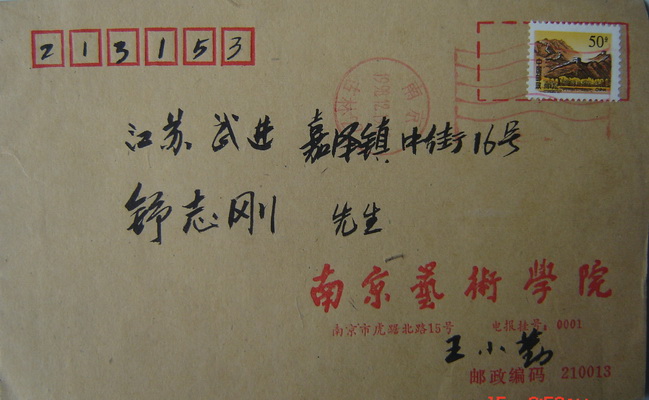 213153
50分
江苏 武进 嘉泽镇 中街16号
舒志刚 先生
南京藝術學院
南京市虎踞北路15号 电报挂号：0001
王小勤
邮政编码 210013